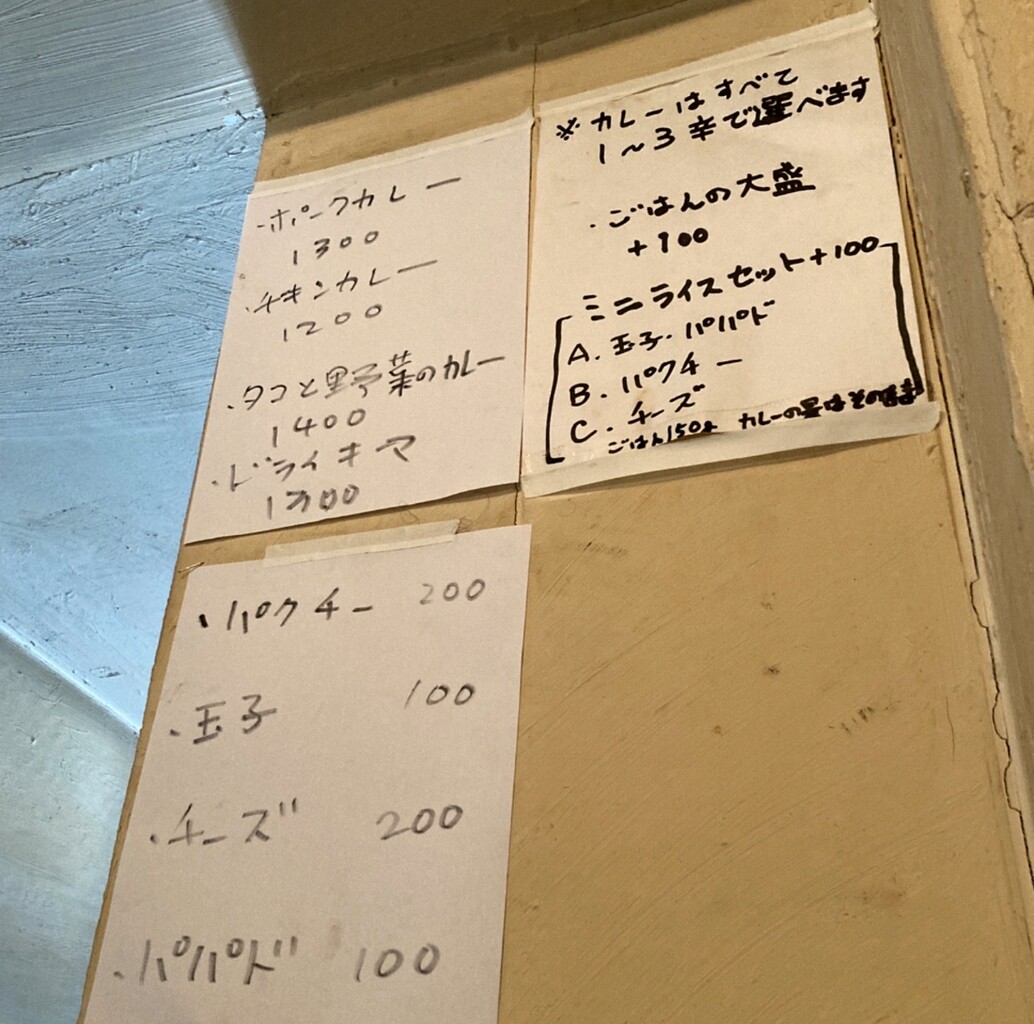 ・ポークカレー
1300
・チキンカレー
1200
・タコと野菜のカレー
1400
・ドライキマ
1300
※カレーはすべて
1~3辛で選べます
・ごはんの大盛
+100
ミニライスセット+100
A. 玉子・パパド
B. パクチー
C. チーズ
ごはん150g カレーの量はそのまま
・パクチー 200
・玉子 100
・チーズ 200
・パパド 100